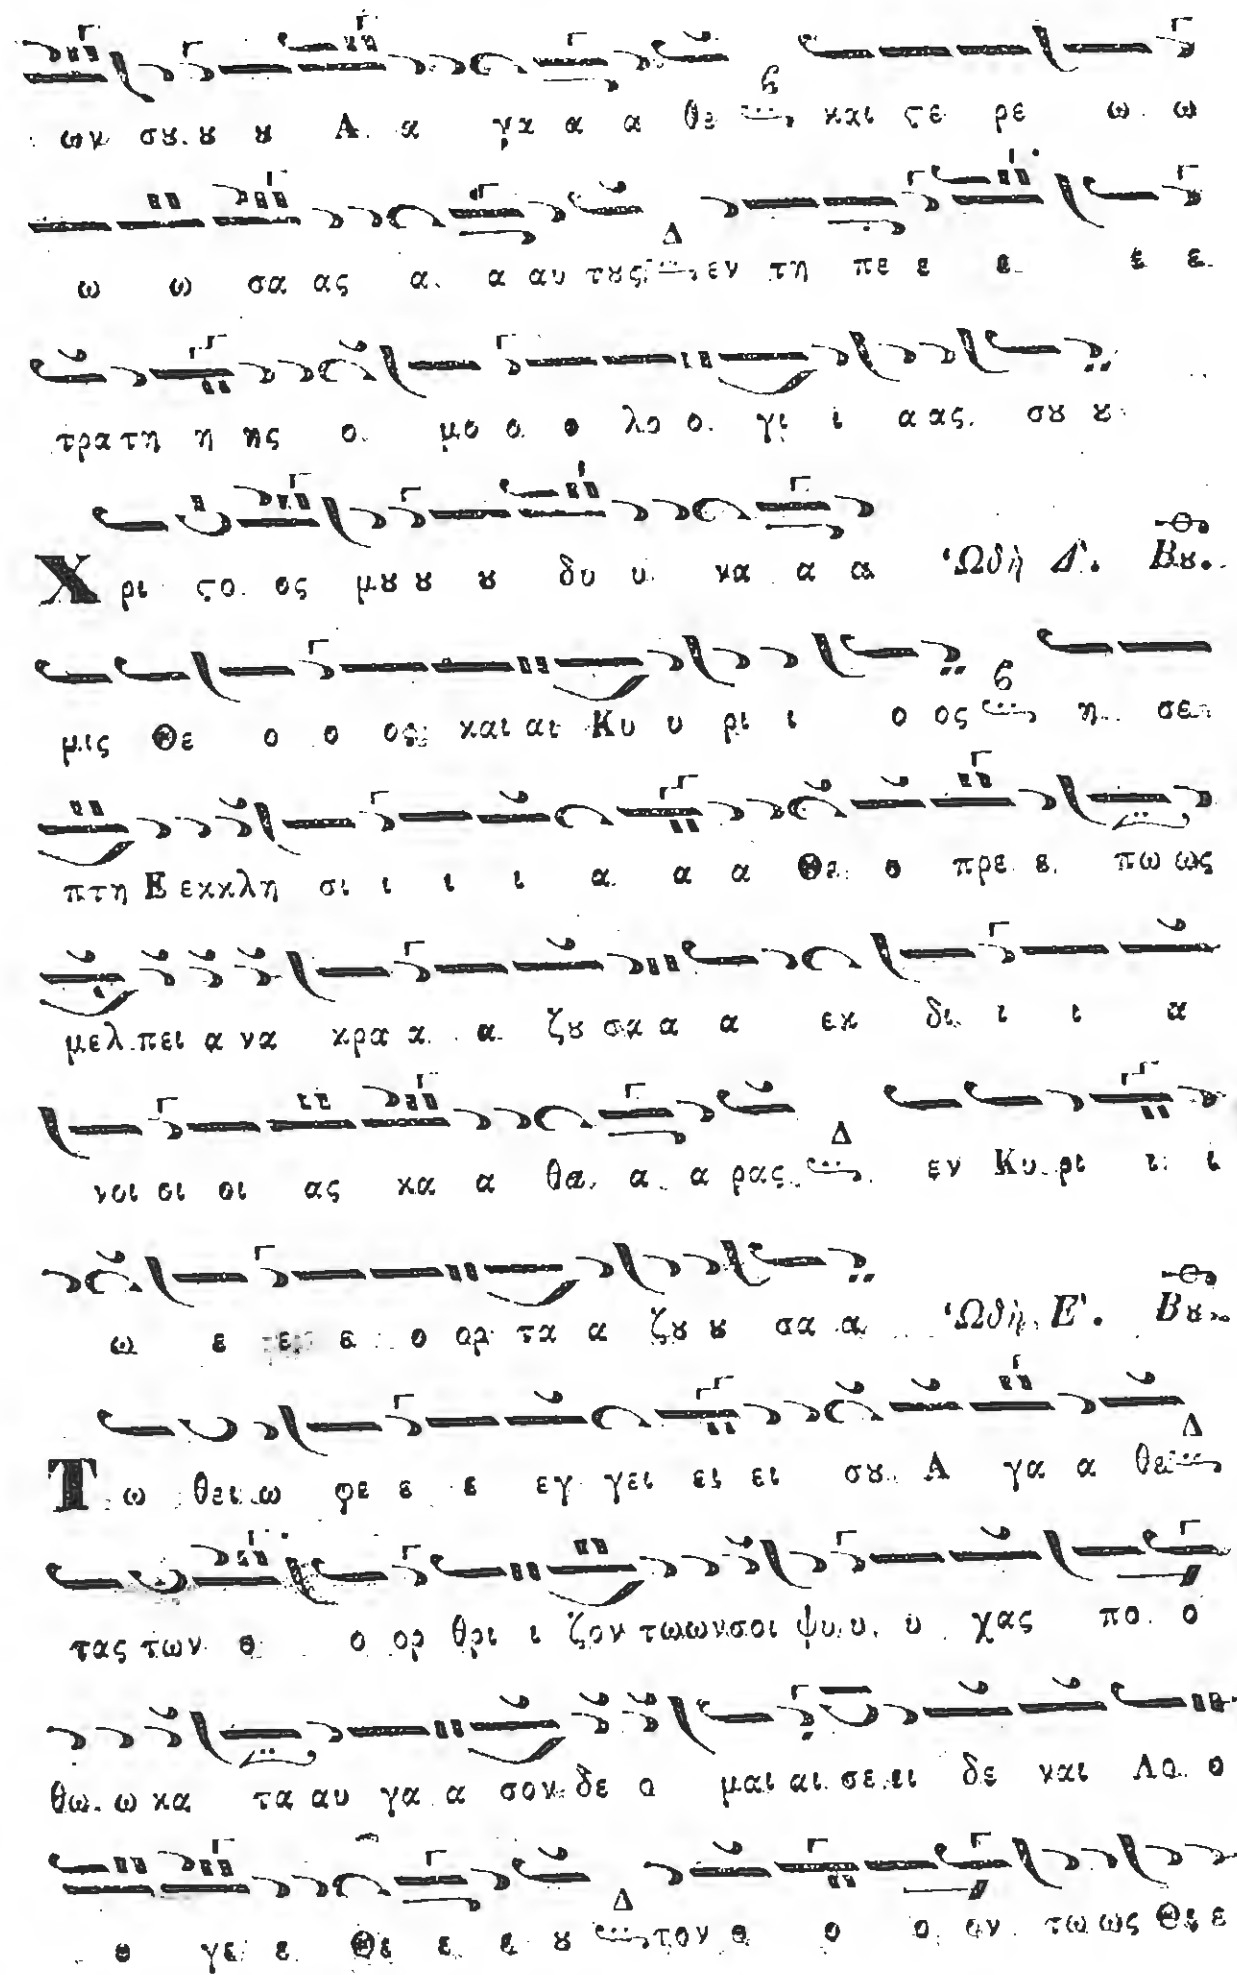 ων σȣ ȣ ȣ Α α γα α α θε και ϛε ρε ω ω
ω ω σα ας α α αυ τȣς Δ εν τη πε ε ε ε ε
τρα τη η ης ο μο ο ο λο ο γι ι α ας σȣ ȣ
Χ ρι ϛο ος μȣ ȣ ȣ δυ υ να α α Ὠδὴ Δ'. Βȣ.
μις Θε ο ο ος και αι Κυ υ ρι ι ο ος η σε
πτη Ε εκκλη σι ι ι ι α α α Θε ο πρε ε πω ως
μελ πει α να κρα α α ζȣ σα α α εκ δι ι ι α
νοι οι οι ας κα α θα α α ρας Δ εν Κυ ρι ι ι
ω ε ε ε ο ορ τα α ζȣ ȣ σα α Ὠδὴ Ε'. Βȣ.
Τ ω θει ω φε ε ε εγ γει ει ει σȣ Α γα α θε Δ
τας των ο ο ορ θρι ι ζον τωωνσοι ψυ υ υ χας πο ο
θω ω κα τα αυ γα α σον δε ο μαι αι σε ει δε ναι Λο ο
ο γε ε Θε ε ε ȣ Δ τον ο ο ο ον τω ως Θε ε